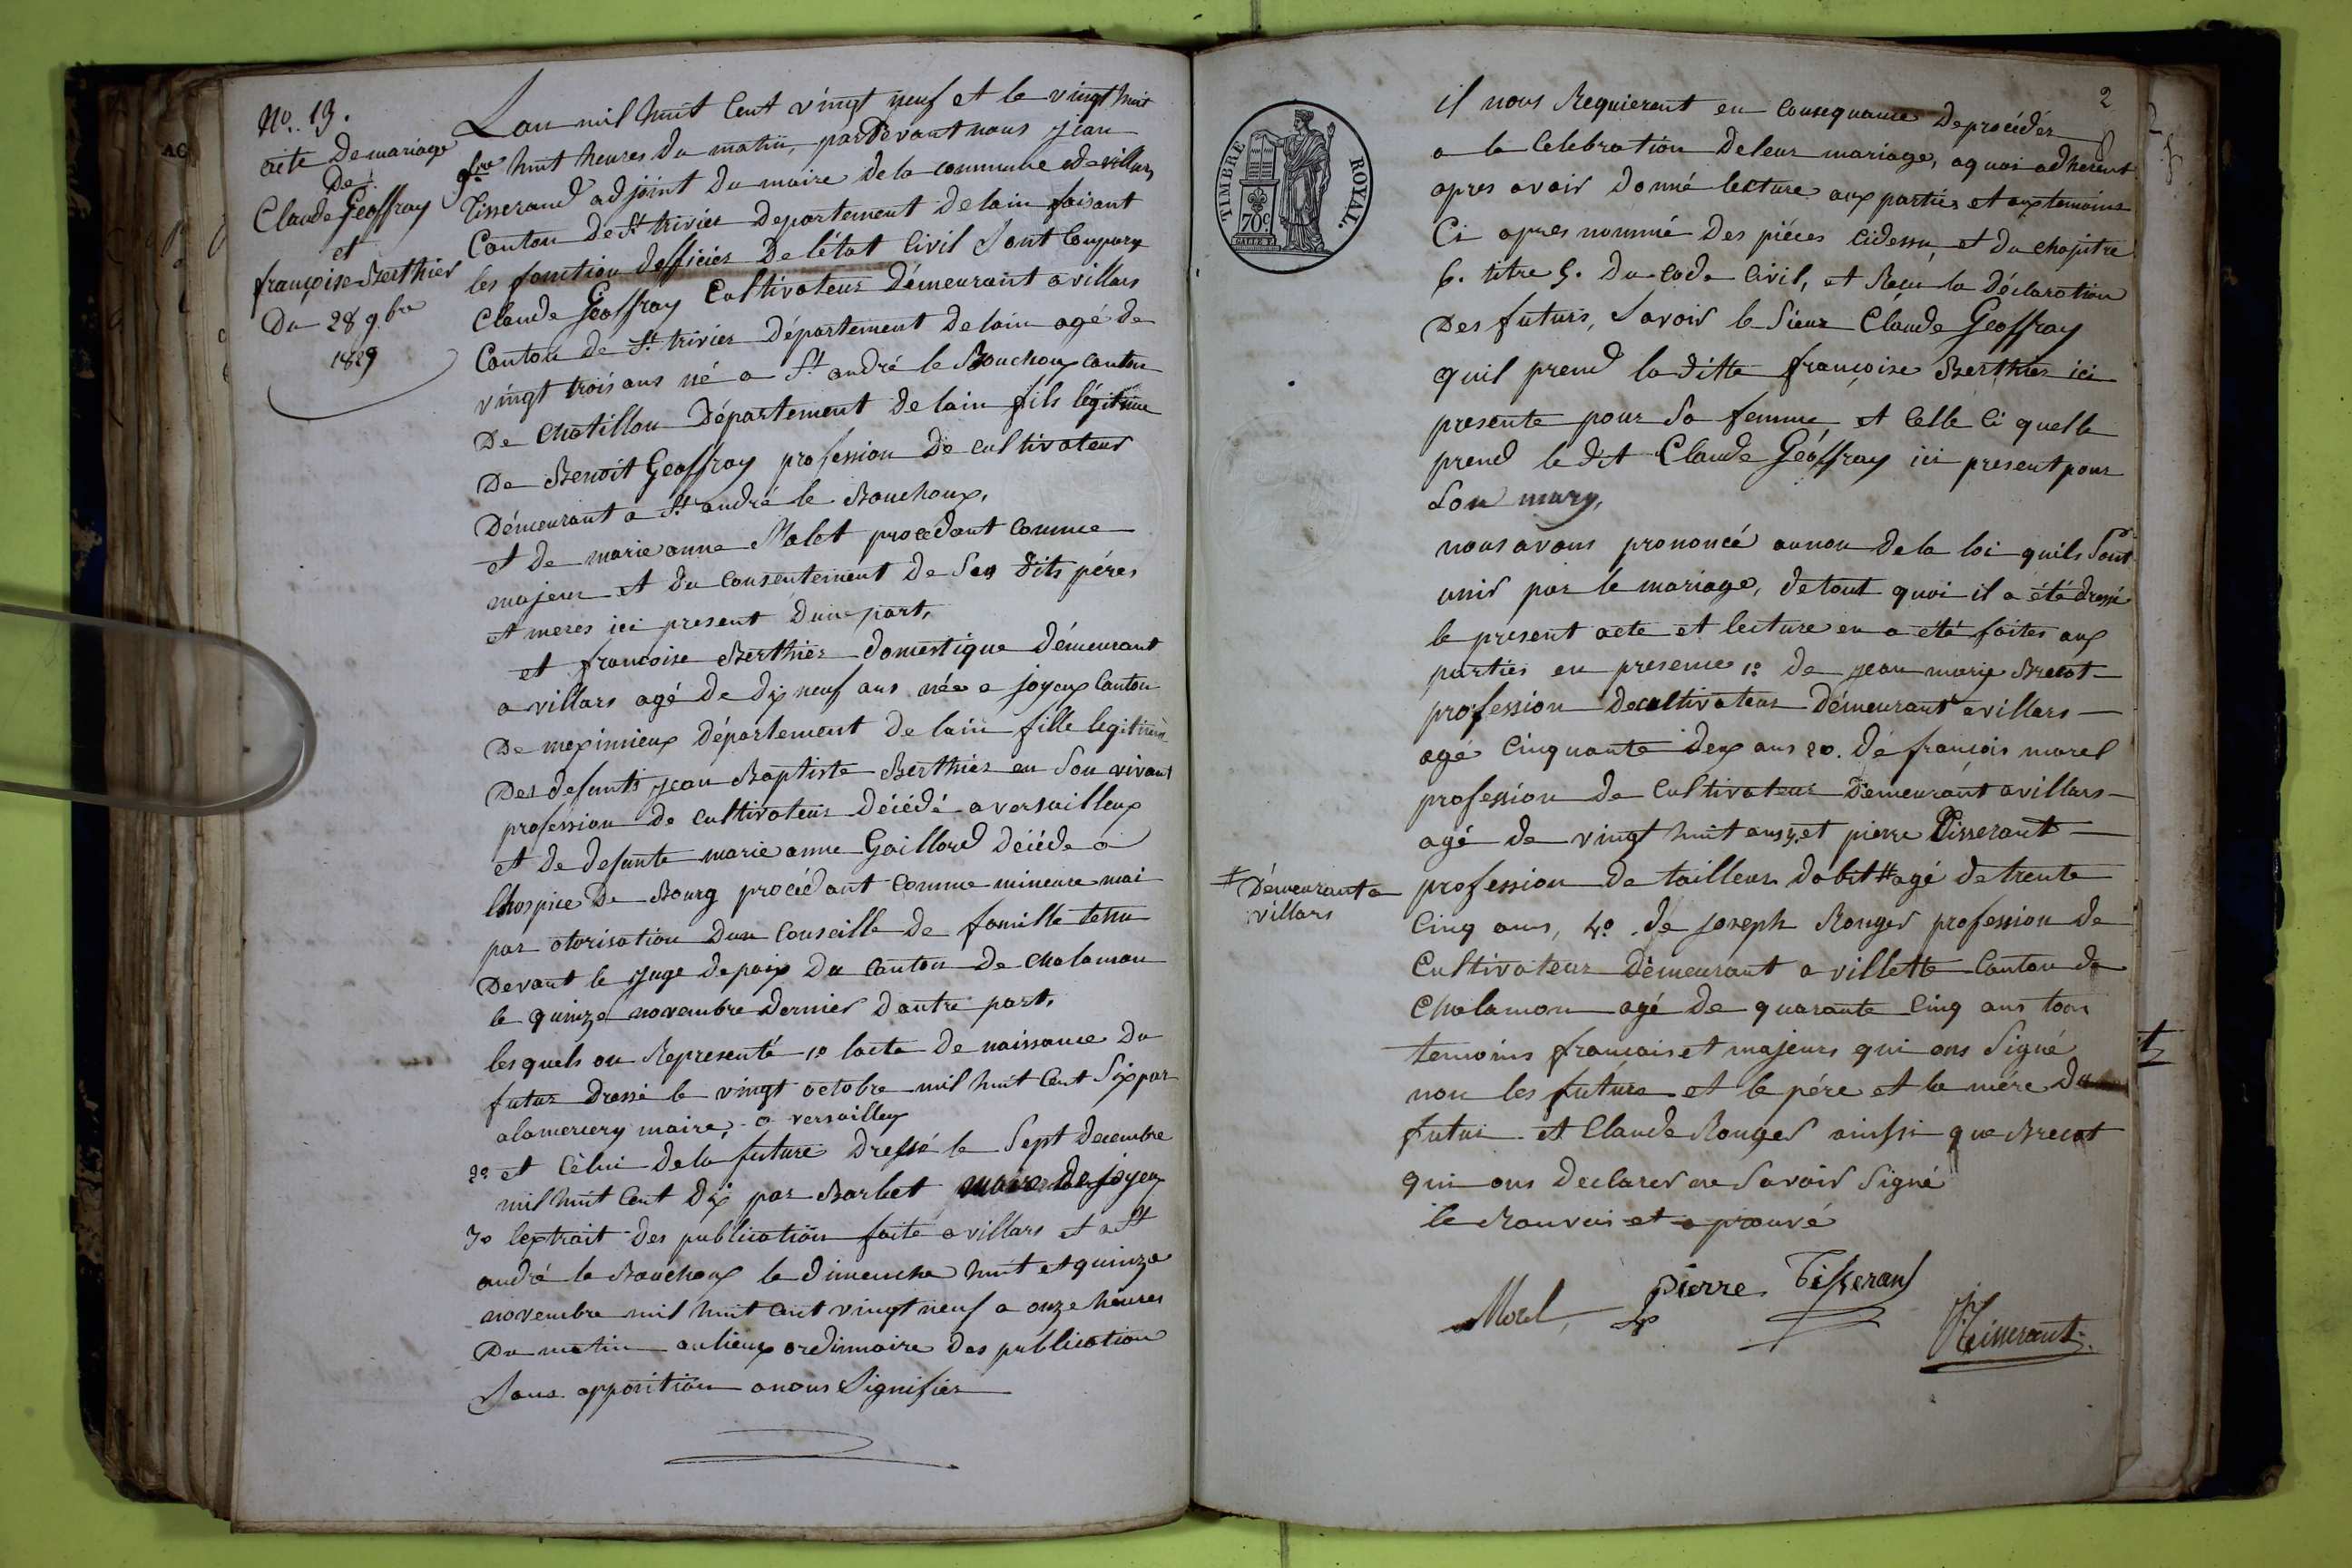 No. 13.
acte Demariage
De
Claude Geoffray
et
françoise Berthier
Du 28 9.bre
1829
Lan mil huit Cent vingt neuf et le vingt huit
9bre huit heures Du matin, pardevant nous jean
Tisserand adjoint Du maire de la commune de villars
Canton De St. trivier Departement De lain faisant
les fonction dofficier De létat Civil Sont Comparu
Claude Geoffray Cultivateur Démeurant a villars
Canton de St. trivier Département De lain agé de
vingt trois ans né a St. andré le Bouchoux Canton
De Chatillon Département de lain fils légitime
De Benoit Geoffray profession De cultivateur
Démeurant a St. andré le Bouchoux,
et de marie anne Malet procedant Comme
majeur et du Consentement de Ses dits péres
et meres ici present dune part,
et francoise Berthier domestique démeurant
a villars agé de dix neuf ans née a joyeux Canton
De meximieux Département de lain fille legitime
Des defunts jean Baptiste Berthier en Son vivant
profession de Cultivateur décédé a versailleux
et de defunte marie anne Gaillard décéde a
lhospice De Bourg procédant Comme mineure mai
par otorisation dun Conseille de famille tenu
Devant le juge depaix Du Canton De Chalamon
le quinze novembre Dernier dautre part.
lesquels on Representé 1o lacte de naissance Du
futur dressé le vingt octobre mil huit Cent Six par
alamercery maire, a versailleux
2o et Célui de la future Dressé le Sept decembre
mil huit Cent dix par Barbet maire de joyeux
3o lextrait Des publication faite a villars et a St
andré le Bouchoux le dimenche huit et quinze
novembre mil huit Cent vingt neuf a onze heures
Du matin au lieux ordinnaire des publication
Sans opposition a nous Signifier
TIMBRE ROYAL.
70c
2
il nous Requierent en Consequance Deprocéder
a la Celebration Deleur mariage, a quoi adherent
apres avoir Donné lecture aux parties et aux temoins
Ci apres nommé Des piéces Cidessu, et du chapitre
6. titre 5. Du Code Civil, et Reçu la déclaration
Des futurs, Savoir le Sieur Claude Geoffray
quil prend la ditte françoise Berthier ici
presente pour Sa femme et Celle Ci quelle
prend le dit Claude Geoffray ici present pour
Son mary,
nous avons prononcé aunon de la loi quils Sont
unis par le mariage, de tout quoi il a été dressé
le present acte et lecture en a été faites aux
parties en presence 1o. de jean marie Brecot
profession decultivateur Démeurant a villars
agé Cinquante deux ans 2o. de francois morel
profession de Cultivateur Démeurant a villars
agé de vingt huit ans 3. et pierre Tisserant
profession de tailleur dabit # agé de trente
# Démeurant a
villars
Cinq ans, 4o. de joseph Ronger profession de
Cultivateur Démeurant a villette Canton de
Chalamon agé de quarante Cinq ans tous
temoins francais et majeurs qui ons Signé
non les future et le pére et la mére du
futur et Claude Ronger ainssi que Brecot
qui ons declarer ne Savoir Signé
et aprouvé
Morel
Pierre Tisserand
Tisserant